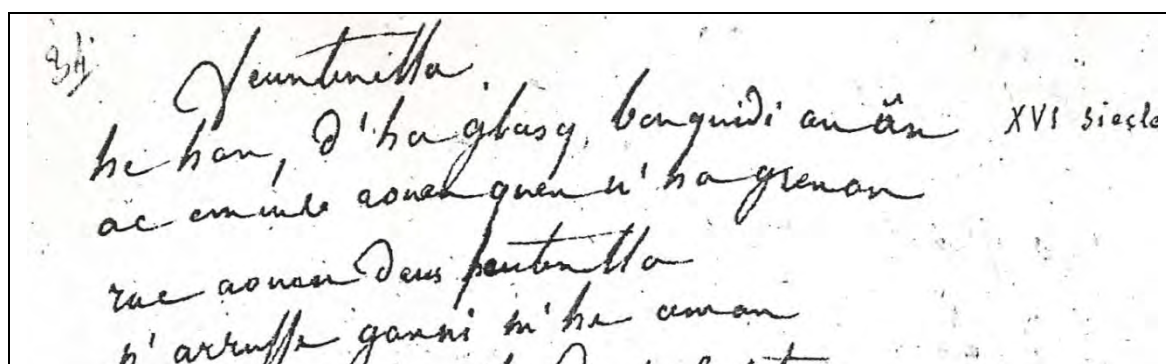 34
feuntenilla
he han, d'ha glasq, banquidi an ân XVI siecle
ac aouen quen n'ha grenan
rac aouen deus feutenilla
n'arruffe ganni m'he aman